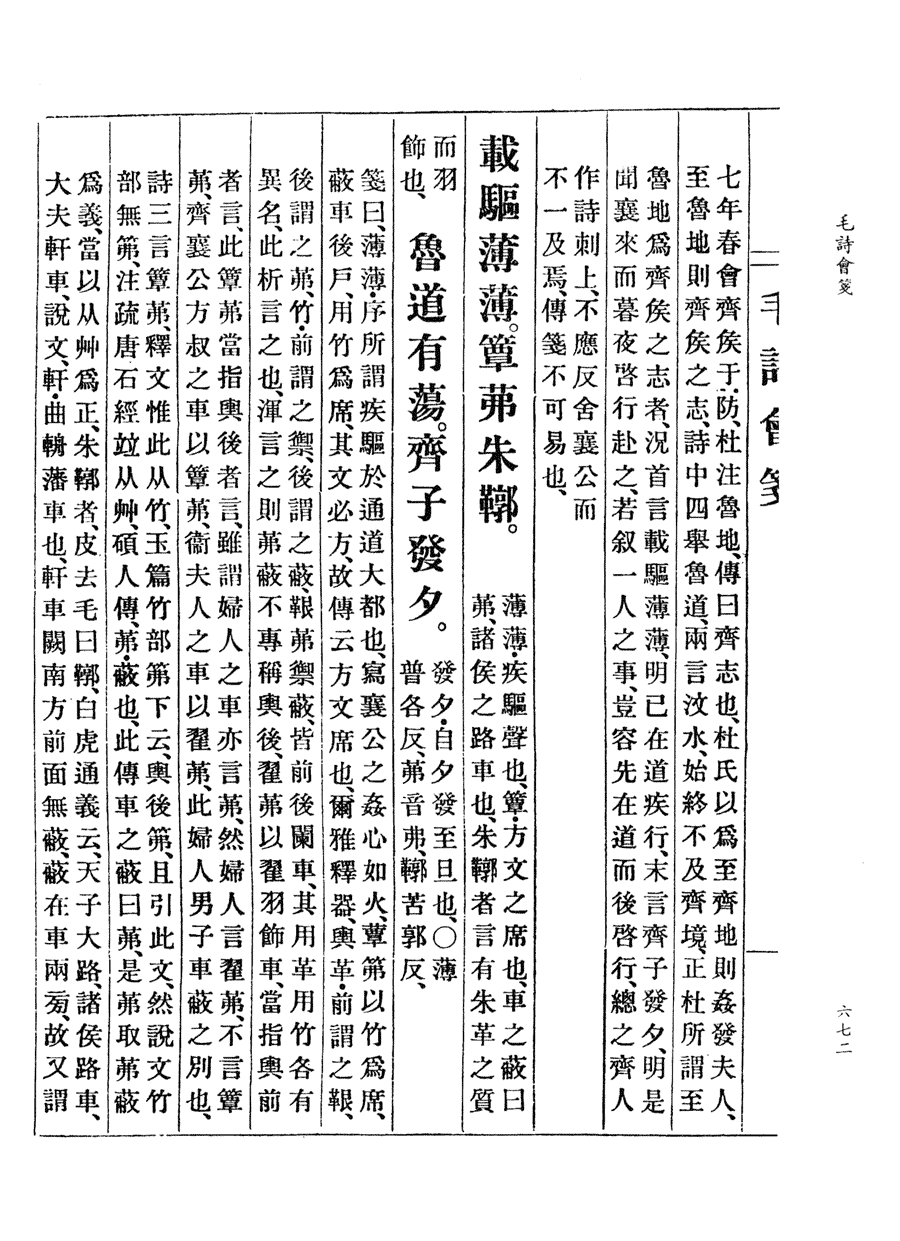 毛詩會箋
六七二
毛詩會箋
七年春會齊矦于防、杜注魯地、傳曰齊志也、杜氏以爲至齊地則姦發夫人、
至魯地則齊矦之志、詩中四舉魯道、兩言汶水、始終不及齊境、正杜所謂至
魯地爲齊矦之志者、況首言載驅薄薄、明已在道疾行、末言齊子發夕、明是
聞襄來而暮夜啓行赴之、若叙一人之事、豈容先在道而後啓行、總之齊人
作詩刺上、不應反舍襄公而
不一及焉、傳箋不可易也、
載驅薄薄。簟茀朱鞹。
薄薄・疾驅聲也、簟・方文之席也、車之蔽曰
茀、諸侯之路車也、朱鞹者言有朱革之質
而羽
飾也、
魯道有蕩。齊子發夕。
發夕・自夕發至旦也、〇薄
普各反、茀音弗、鞹苦郭反、
箋曰、薄薄・序所謂疾驅於通道大都也、寫襄公之姦心如火、蕈第以竹爲席、
蔽車後戶、用竹爲席、其文必方、故傳云、方文席也、爾雅釋器、輿革・前謂之鞎、
後謂之茀、竹・前謂之禦、後謂之蔽、鞎茀禦蔽、皆前後闌車、其用革用竹各有
異名、此析言之也、渾言之則茀蔽不專稱輿後、翟茀以翟羽飾車、當指輿前
者言、此簟茀當指輿後者言、雖謂婦人之車亦言茀、然婦人言翟茀、不言簟
茀、齊襄公方叔之車以簟茀、衞夫人之車以翟茀、此婦人男子車蔽之別也、
詩三言簟茀、釋文惟此从竹、玉篇竹部第下云、輿後第、且引此文、然說文竹
部無第、注疏唐石經竝从艸、碩人傳、茀・蔽也、此傳車之蔽曰茀、是茀取茀蔽
爲義、當以从艸爲正、朱鞹者、皮去毛曰鞹、白虎通義云、天子大路、諸侯路車、
大夫軒車、說文、軒・曲輈藩車也、軒車闕南方前面無蔽、蔽在車兩旁、故又謂